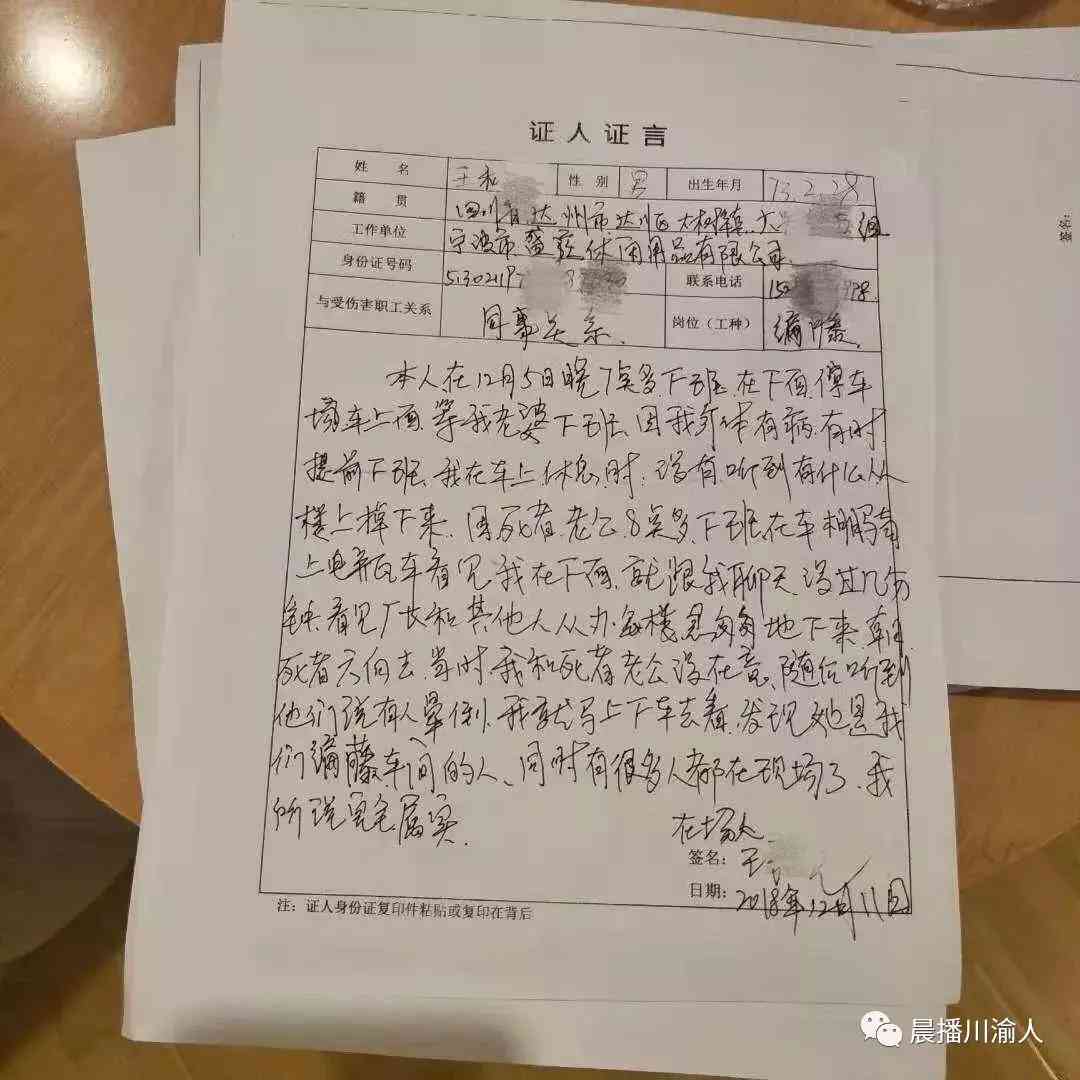 证人证言
姓名 王和 性别 男 出生年月 73.2.28
籍贯 四川省达州市达川区大树镇 组
工作单位 宁波市 休闲用品有限公司
身份证号码 513021197 联系电话 15 98.
与受伤害职工关系 同事关系. 岗位（工种） 编藤.
本人在12月5日晚7点多下班.在下面停车
场车上面.等我老婆下班.因我身体有病.有时.
提前下班.我在车上休息时.没有听到有什么从
楼上掉下来.因死者老公8点多下班.在车棚骑
上电动车看见我在下面.就跟我聊天.没过几分
钟.看见厂长和其他人从办公楼急匆匆地下来.
死者方向去.当时.我和死者老公没在意.随后听到
他们说有人晕倒.我就马上下车去看.发现她是我
们编藤车间的人、同时有很多人都在现场了.我
所说完全属实.
在场人.
签名： 王
日期： 2018年12月11日
注：证人身份证复印件粘贴或复印在背后
签名：
晨播川渝人